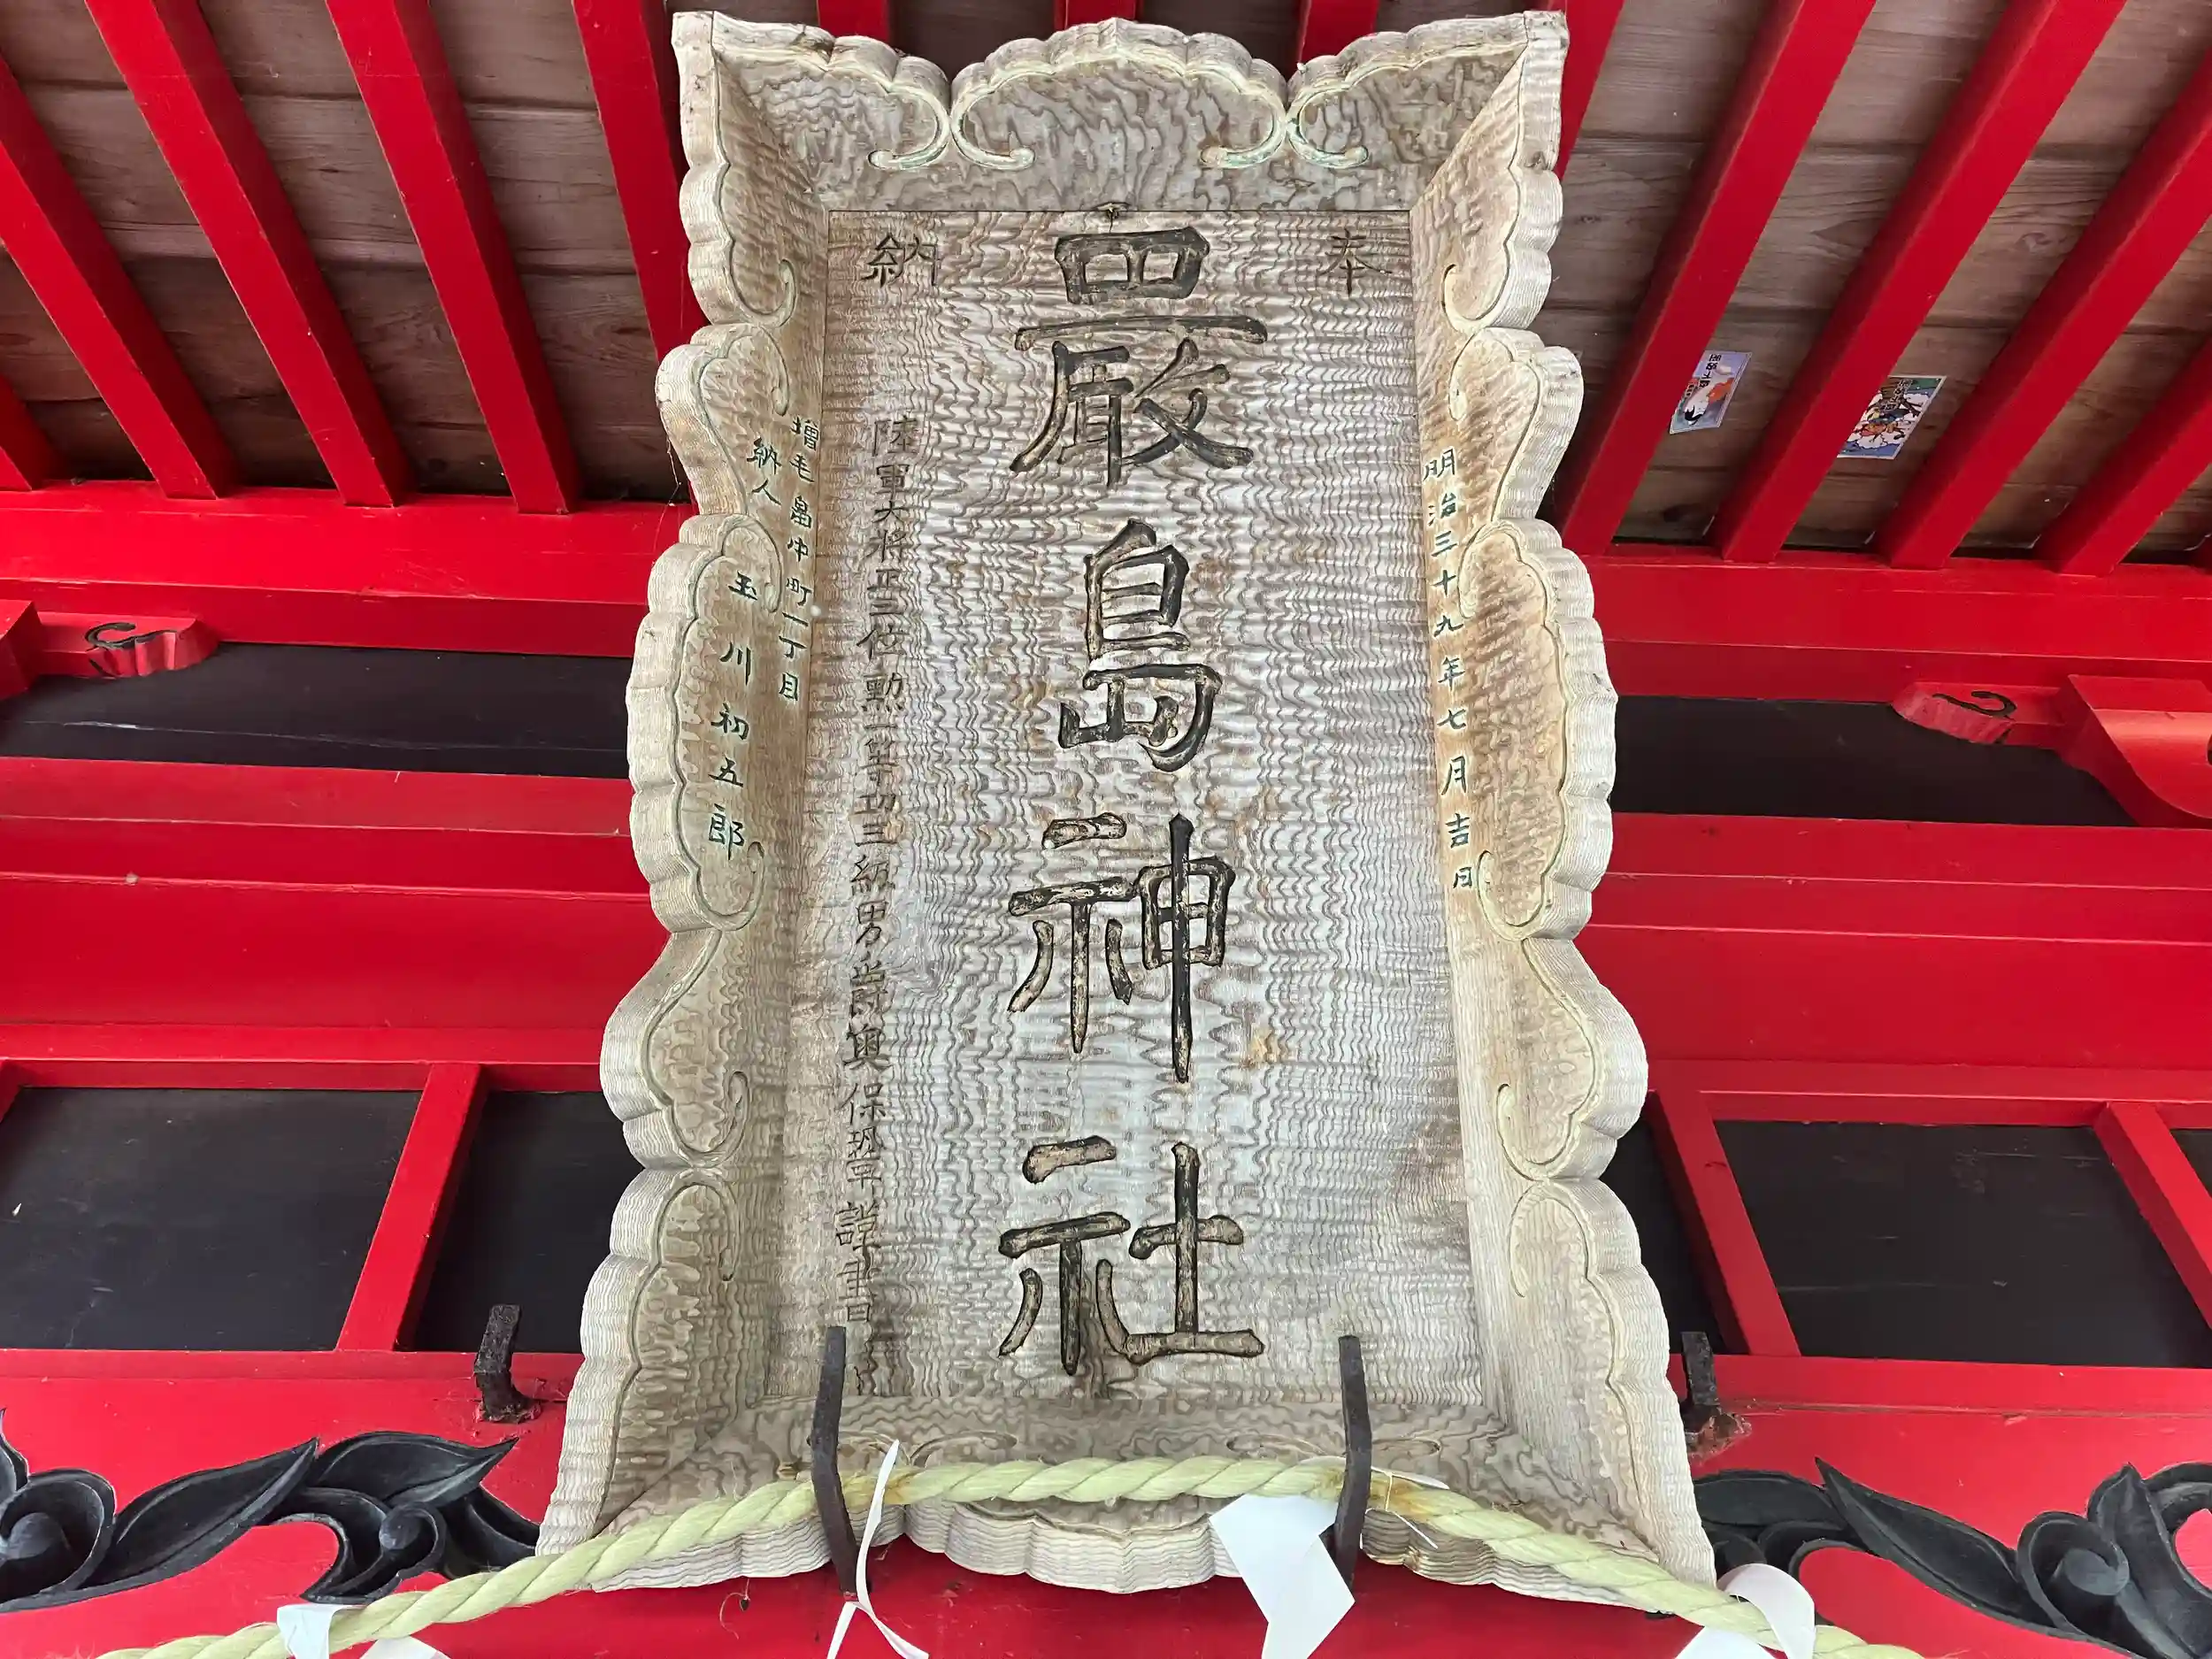 奉
納
嚴島神社
明治三十九年七月吉日
陸軍大将正三位勲一等功三級男爵奥保鞏謹書
増毛畠中町一丁目
納人
玉川初五郎